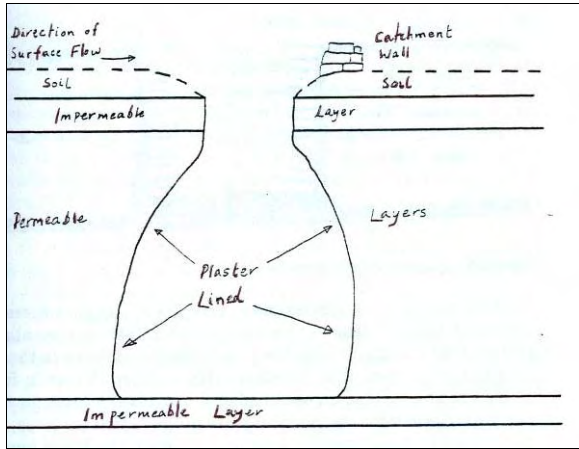 Direction of
Surface Flow
Catchment
Wall
Soil
Soil
Impermeable
Layer
Permeable
Layers
Plaster
Lined
Impermeable Layer